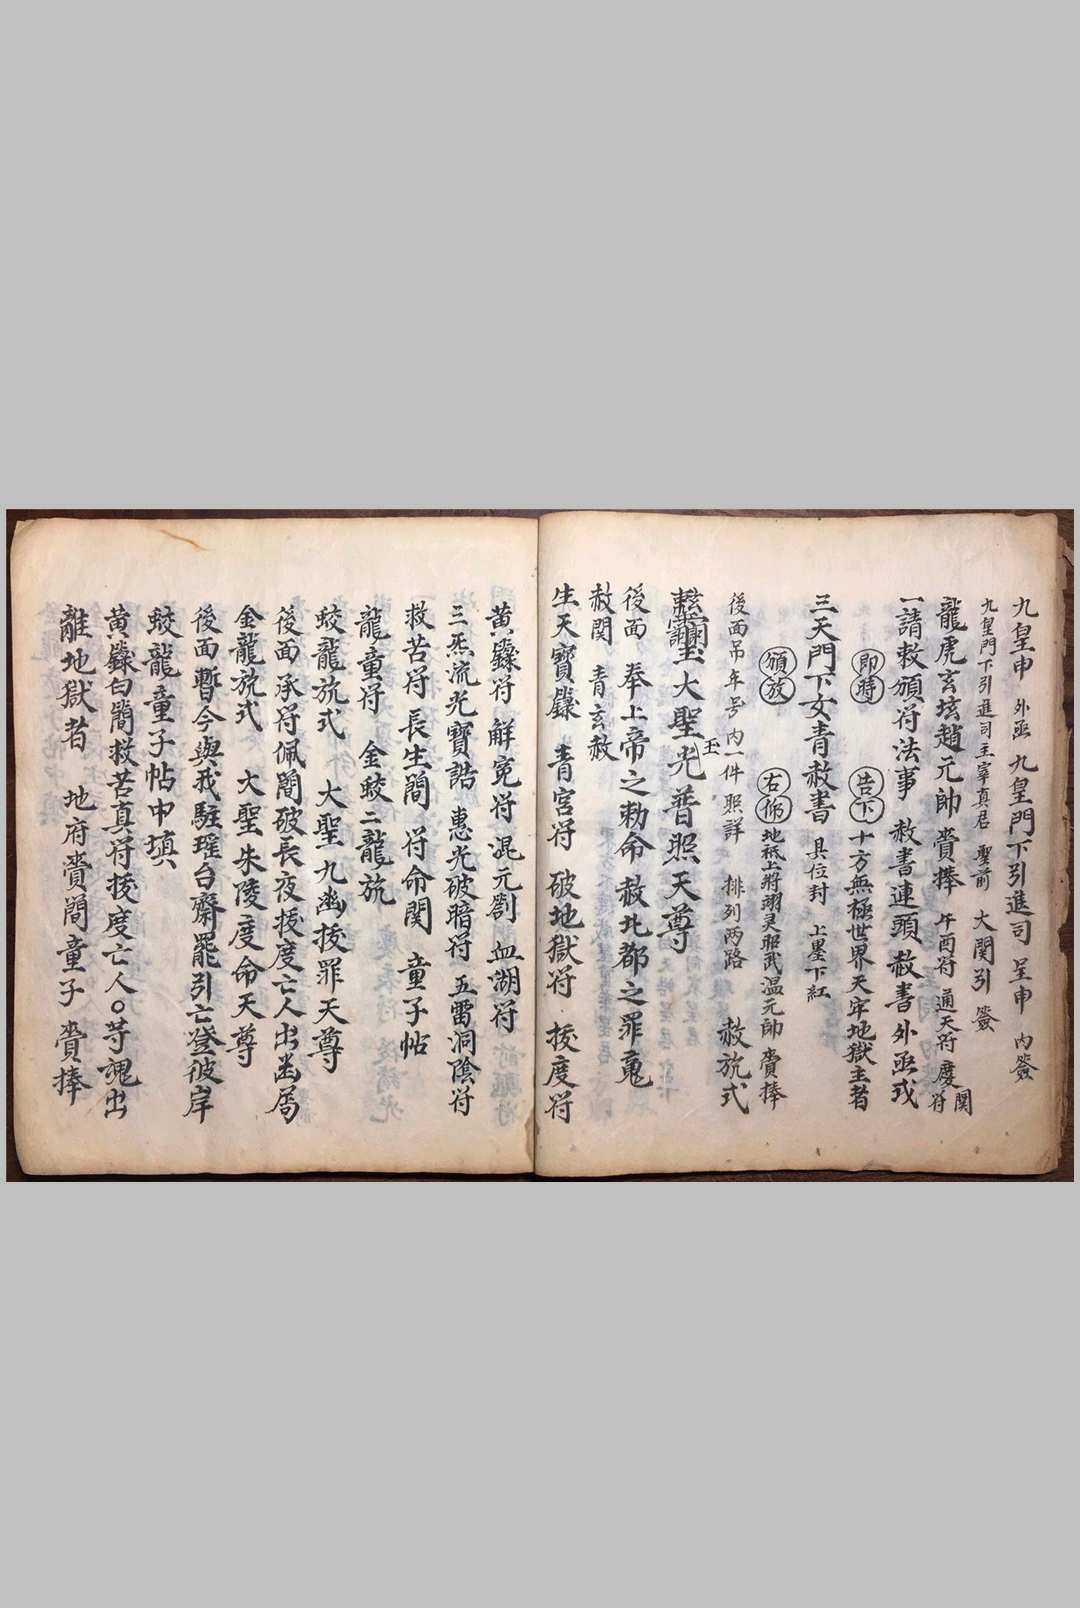 九皇申 外函 九皇門下引進司 呈申 內簽
九皇門下引進司主宰真君 聖前 大関引 簽
龍虎玄坛趙元帥 賫捧 午酉符 通天符 度符 関
一請敕頒符法事 赦書連頭 赦書外函戍
即時 告下 十方無極世界天牢地獄主者
三天門下女青赦書 具位封 上墨下紅
頒放 右仰 地祇上將翊灵昭武温元帥 賫捧
後面吊年号內一件 照詳 排列两路 赦旈式
大聖光普照天尊 玉
後面 奉上帝之勅命 赦北都之罪䰟
赦関 青玄赦
生天寶籙 青宮符 破地獄符 㧞度符
黄籙符 解寃符 混元劄 血湖符
三炁流光寶誥 惠光破暗符 五雷洞陰符
救苦符 長生簡 符命関 童子帖
龍童符 金蛟二龍旈
蛟龍旈式 大聖九幽㧞罪天尊
後面承符佩簡破長夜㧞度亡人出幽局
金龍旈式 大聖朱陵度命天尊
後面暫今與我駐瑶台齋罷引亡登彼岸
蛟龍童子帖中填
黄籙白簡救苦真符㧞度亡人○等魂出
離地獄者 地府賫簡童子 賫捧